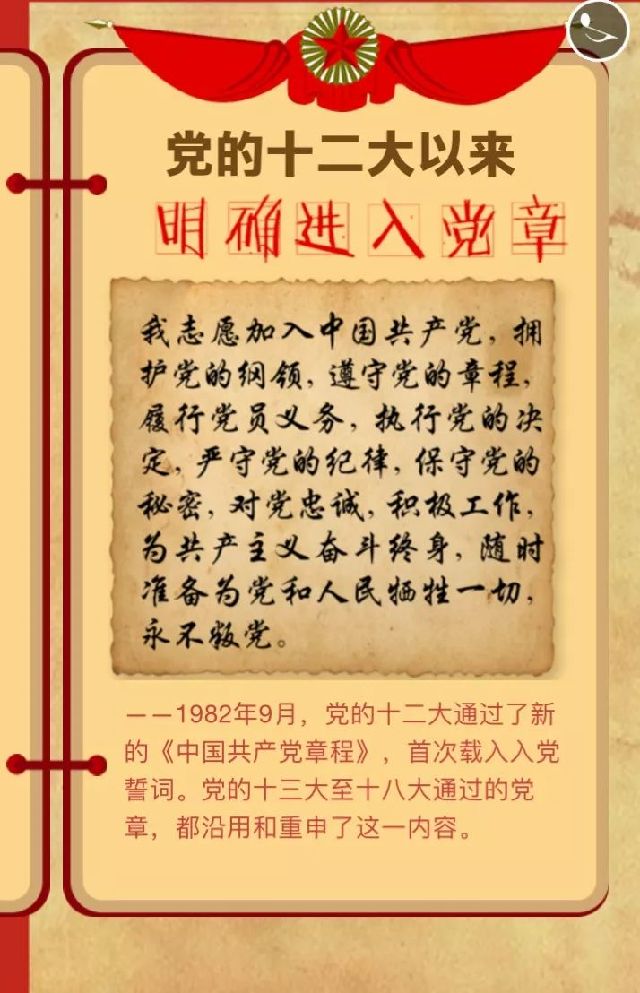 党的十二大以来
明确进入党章
我志愿加入中国共产党，拥
护党的纲领，遵守党的章程，
履行党员义务，执行党的决
定，严守党的纪律，保守党的
秘密，对党忠诚，积极工作，
为共产主义奋斗终身，随时
准备为党和人民牺牲一切，
永不叛党。
——1982年9月，党的十二大通过了新
的《中国共产党章程》，首次载入入党
誓词。党的十三大至十八大通过的党
章，都沿用和重申了这一内容。